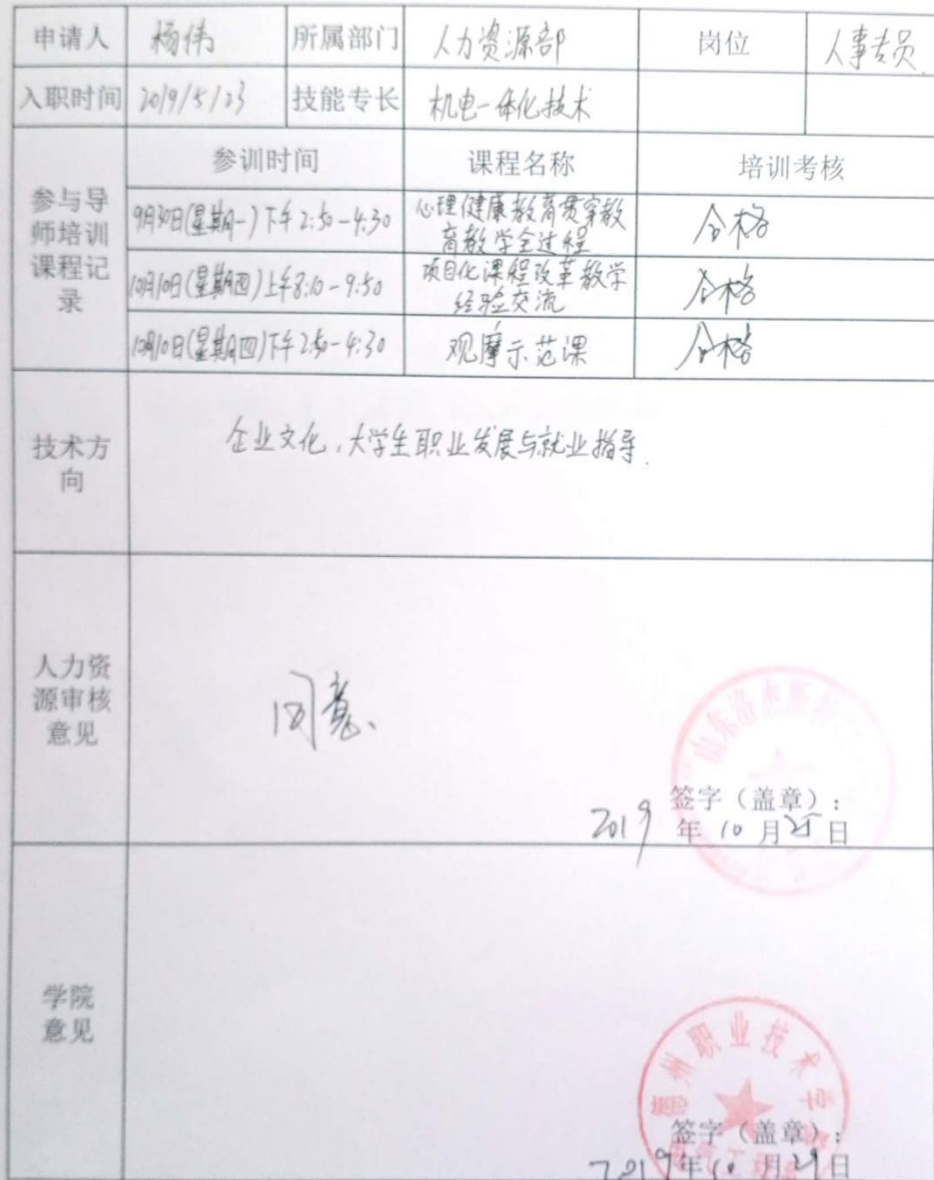 申请人 杨伟 所属部门 人力资源部 岗位 人事专员
入职时间 2019/5/23 技能专长 机电一体化技术
参与导师培训课程记录
参训时间 课程名称 培训考核
9月30日(星期一)下午2:50-4:30 心理健康教育贯穿教育教学全过程 合格
10月10日(星期四)上午8:10-9:50 项目化课程改革教学经验交流 合格
10月10日(星期四)下午2:50-4:30 观摩示范课 合格
技术方向
企业文化,大学生职业发展与就业指导.
人力资源审核意见
同意、
签字(盖章):
2019年10月25日
学院意见
德州职业技术学院
签字(盖章):
2019年10月29日